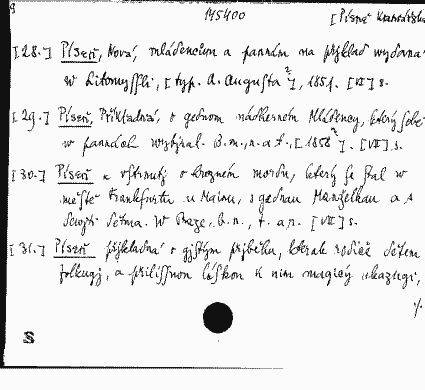 8 145400 [Písně Kramářské
[28.] Píseň, Nová, mládencům a pannám na přjklad wydaná
w Litomyssli, [typ. A. Augusta?], 1851. [VI] s.
[29.] Píseň, Přjkladná, o gednom nádherném Mládency, který sobě
w pannách wybjral. B.m., n. a t., [1858?]. [VII] s.
[30.] Píseň k vstrnutj o hrozném mordu, který se stal w
městě Frankfurtu u Mainu, s gednau Manželkau a s
Sedmi Dětma. W Praze, b.n., t. a r. [VII] s.
[31.] Píseň přjkladná o gistým přjběhu, kterak rodiče dětem
folkugj, a přílissnou láskou k nim magicý ukazugj,
%
S